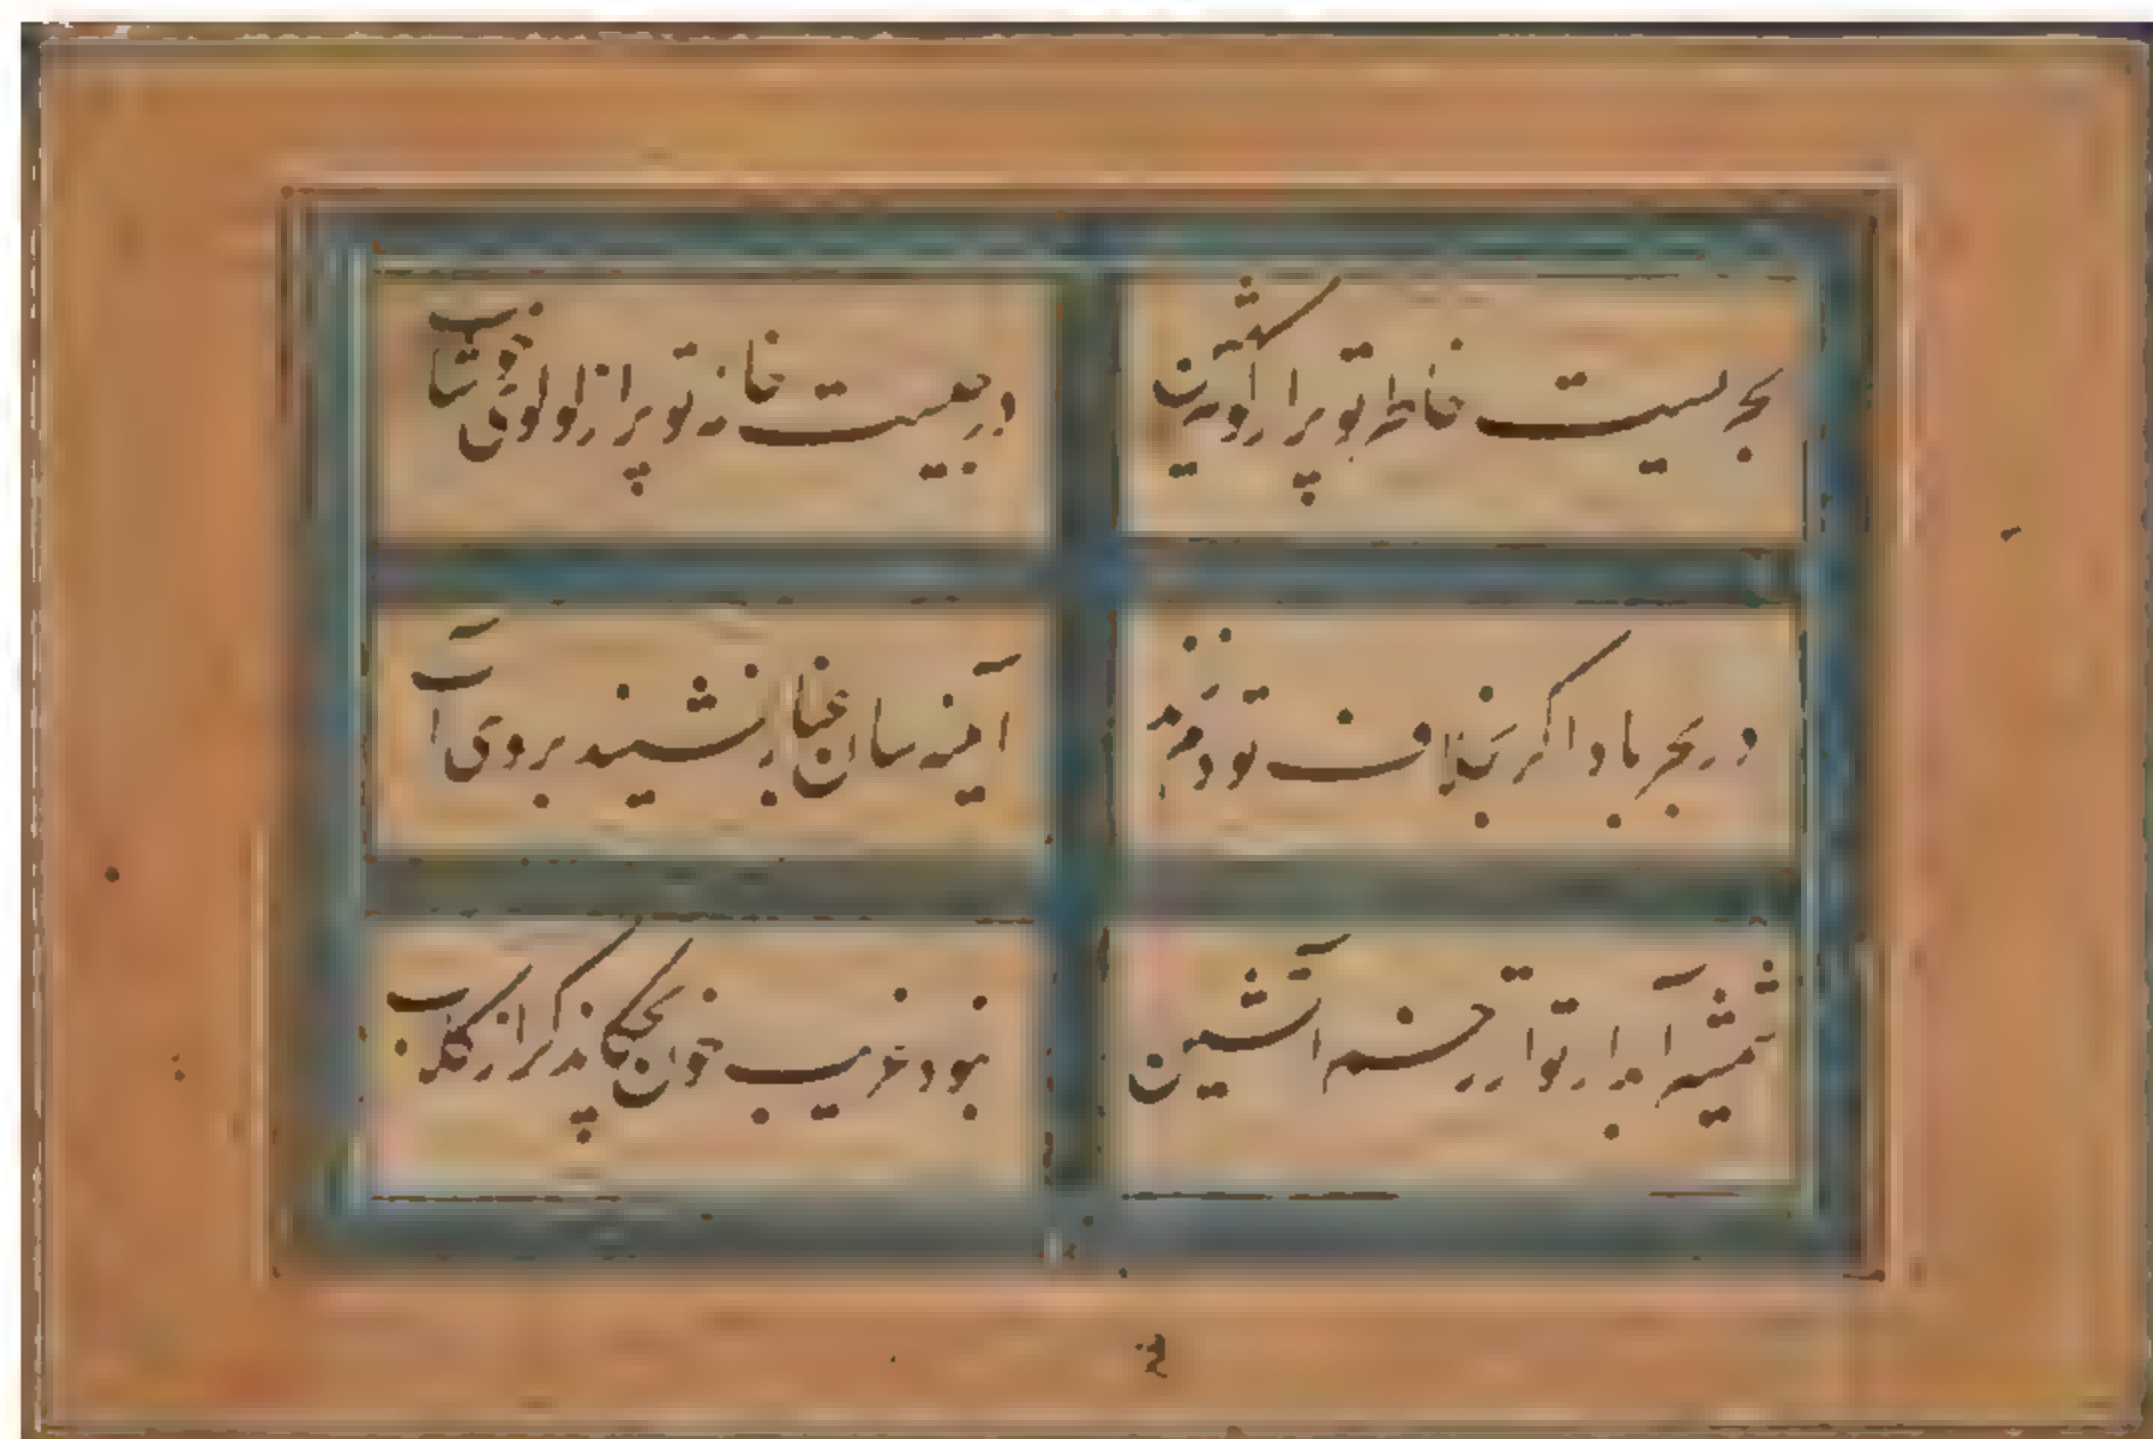 بحریست خاطر تو پر از گوهر ثمین
درجیست خانه تو پر از لولوی خوشاب
در بحر باد اگر بخلاف تو در وزد
آینه سان غبار نشیند بروی آب
شمشیر آبدار تو از زخم آتشین
نبود غریب خون گر از